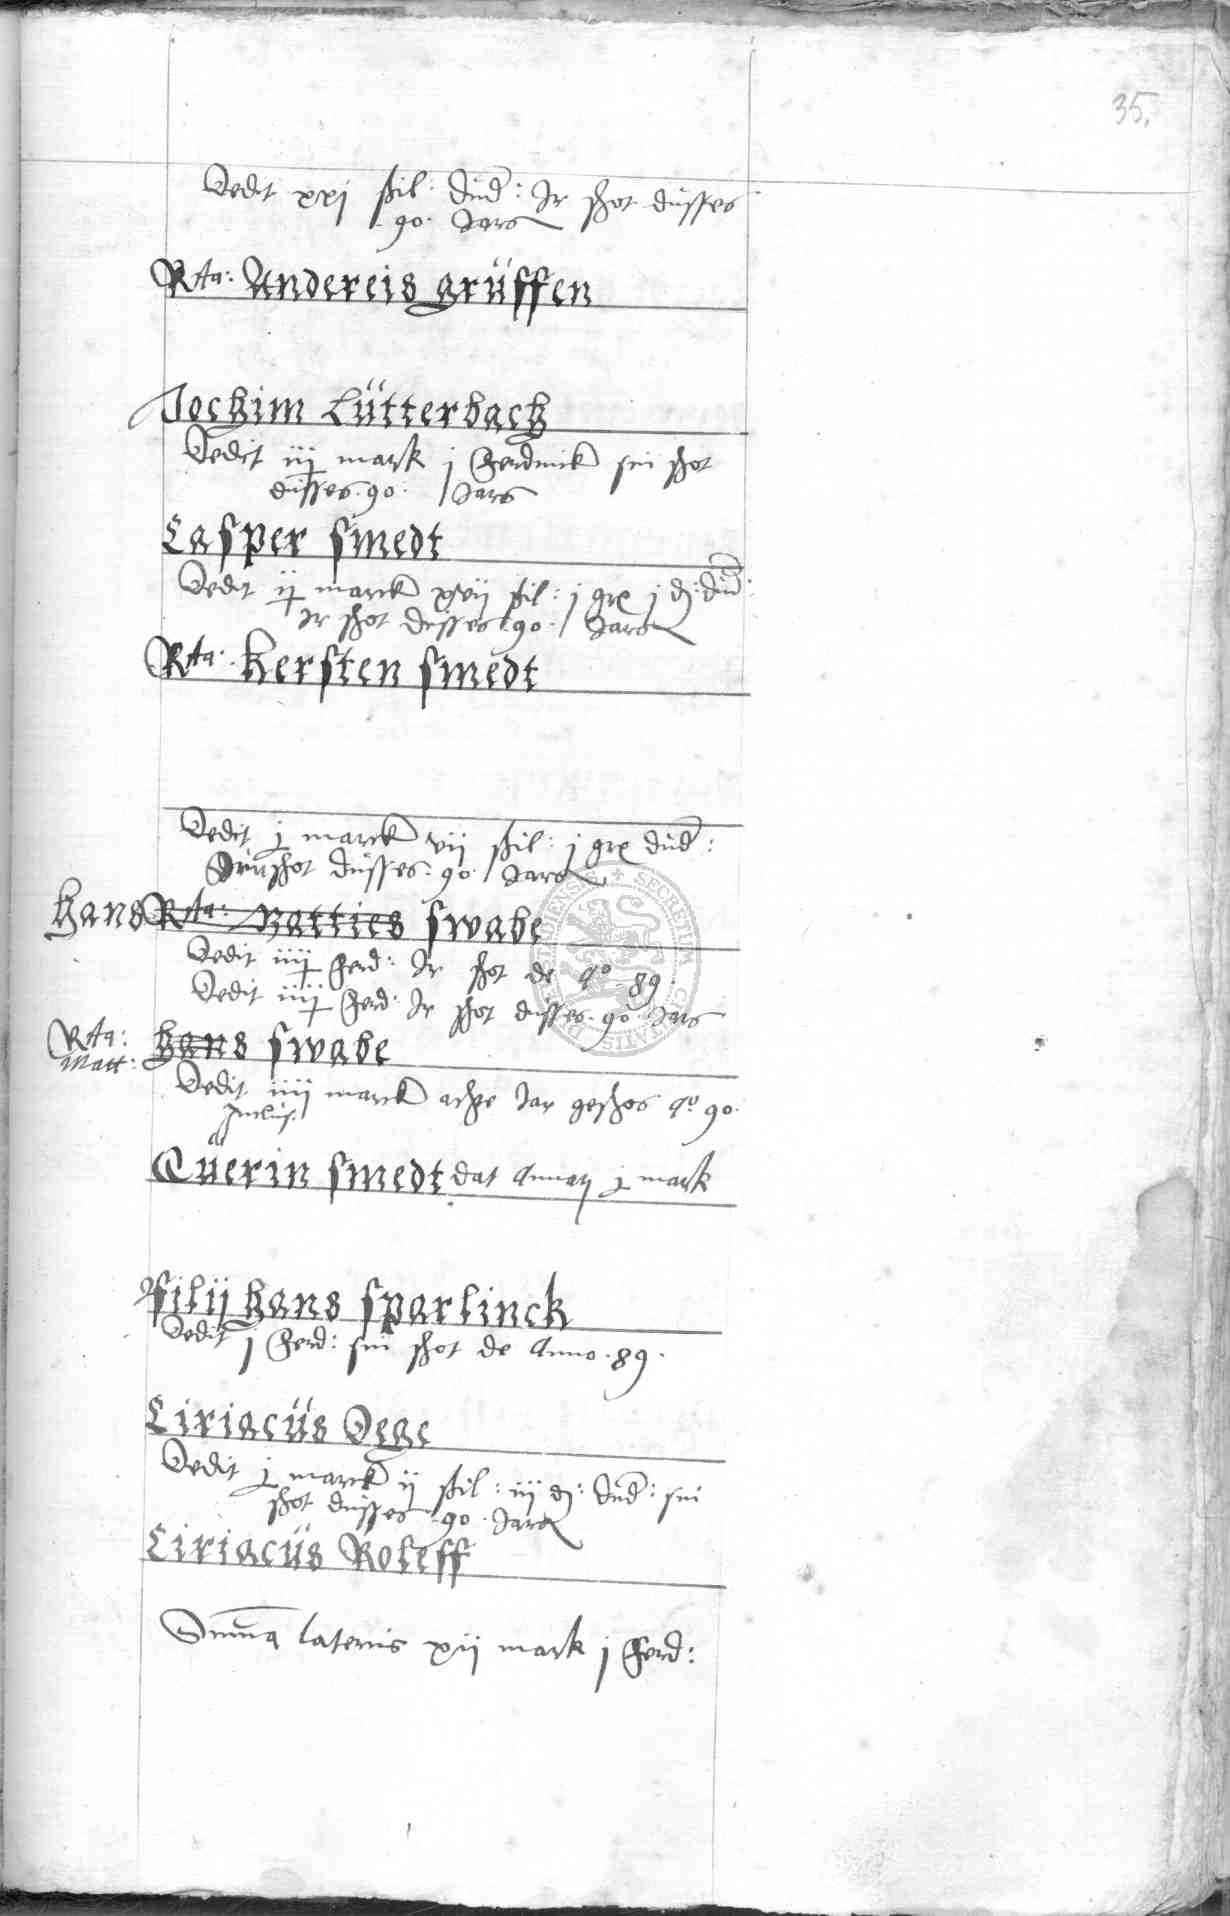 35.
Dedit xxj ßil: düd: Jr shot düsses
.90. Jars
Rta: Andereis grüffen
Jochim Lütterbach
Dedit iij mark j ferdinck sin shot
düsses .90. Jars
Casper smedt
Dedit ij marck xvij ßil: j gr j d: düd:
Jr shot düsses .90. Jars
Rta: Kersten smedt
Dedit j marck vij ßil: j gr düd:
shot düsses .90. Jars
Hans Rta: Matties swabe
Dedit iiij ferd: Jr shot de Ao 89.
Dedit iiij ferd: Jr shot düsses .90. Jars
Rta: Matt: hans swabe
Dedit iiij marck achte Jar geshos Ao 90.
Inclus.
Querin smedt dat Annatj j mark
Filij hans sparlinck
Dedit j ferd: sin shot de Anno .89.
Ciriacüs Dege
Dedit j marck ij ßil: iij d: düd: sin
shot düsses .90. Jars
Ciriacüs Roleff
Summa lateris xij mark j ferd:
SECRETUM CIVITATIS